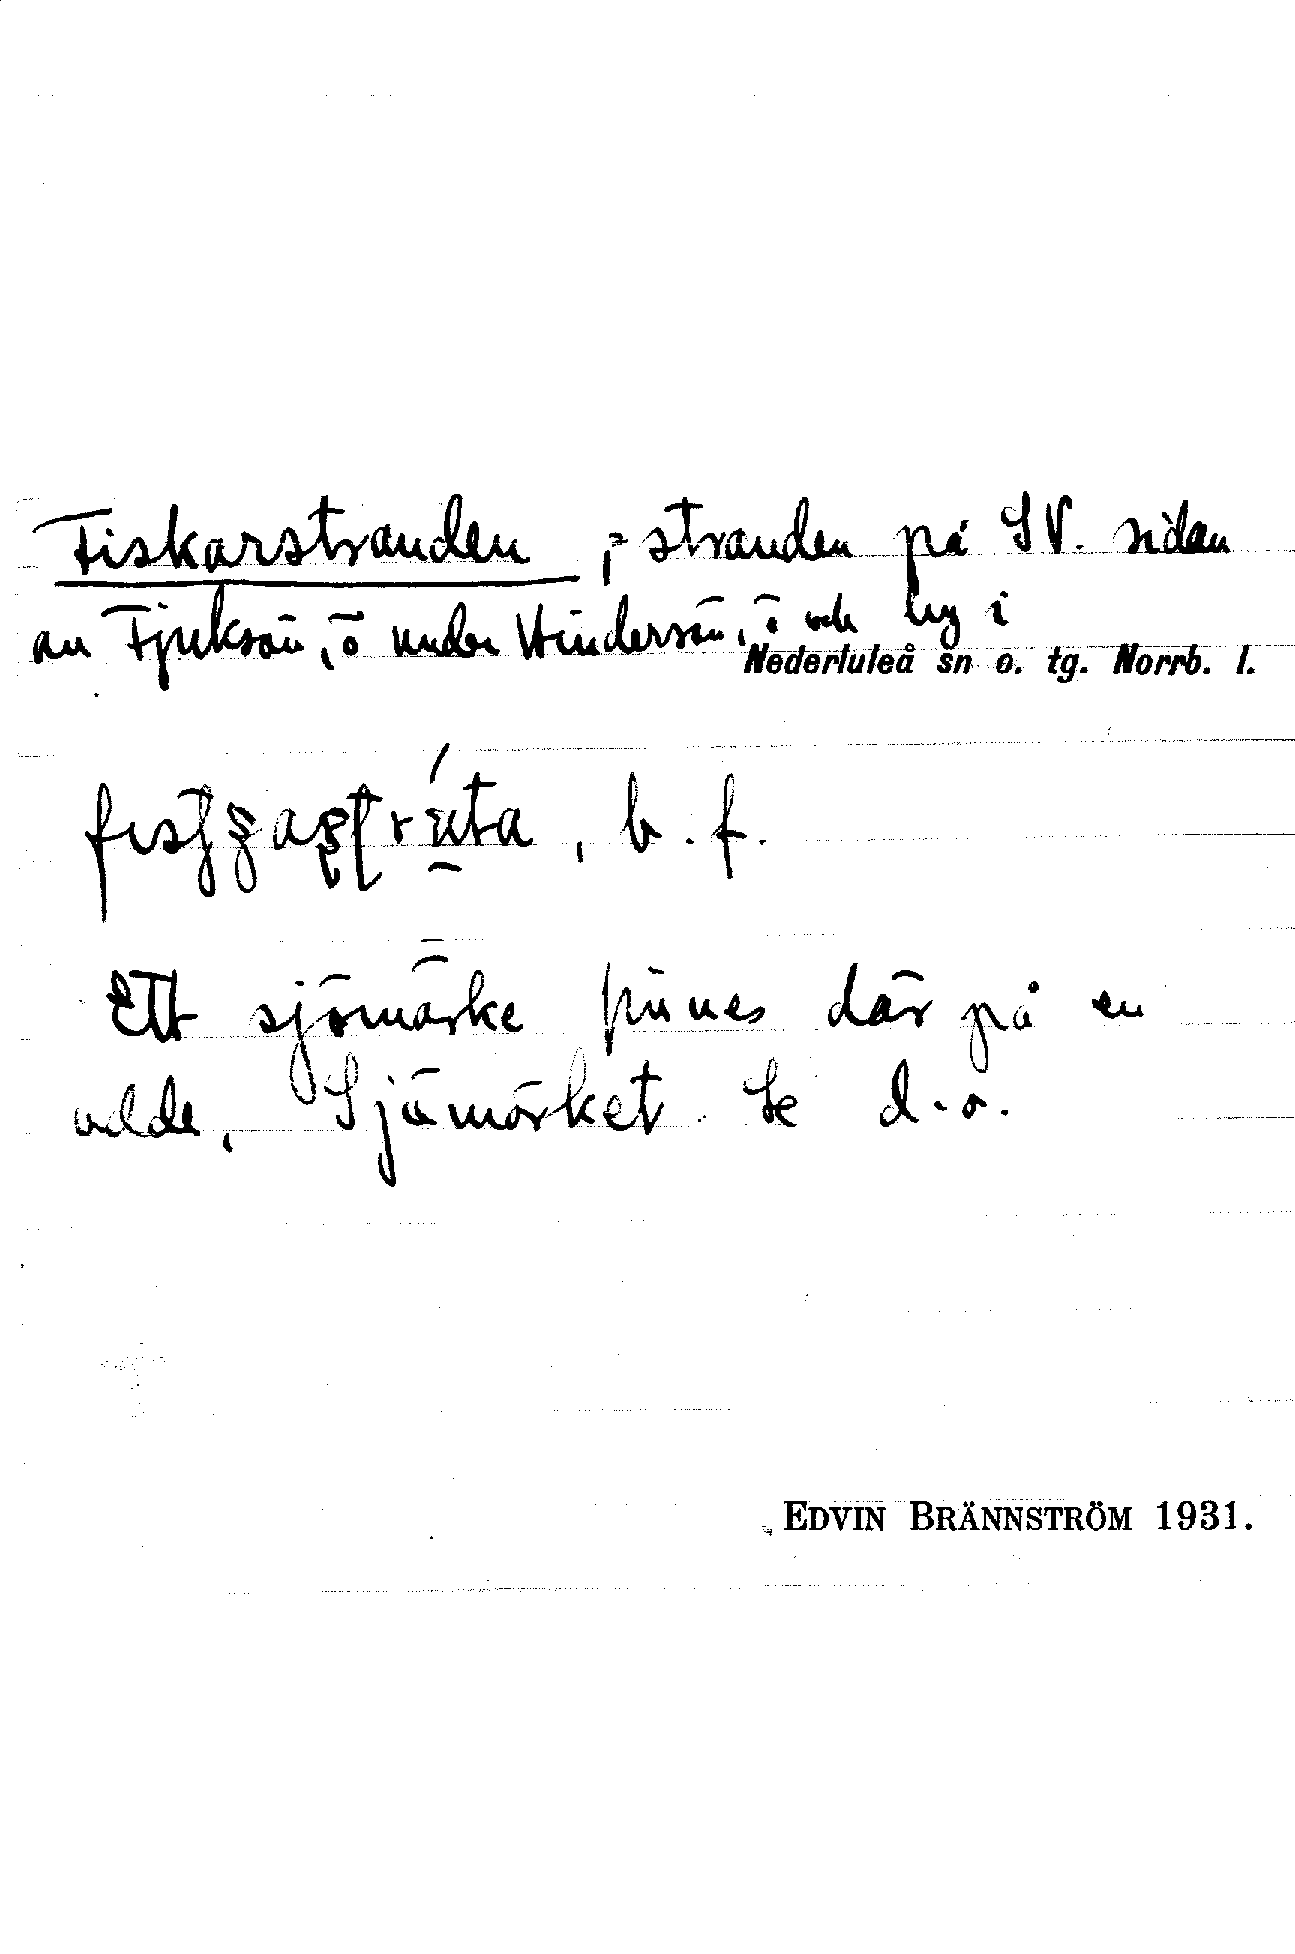 Fiskarstranden, = stranden på SV. sidan
av Fjuksön, ö under Hindersön, ö och by i
Nederluleå sn o. tg. Norrb. l.
, b. f.
Ett sjömärke finnes där på en
udde, Sjömärket. Se d.o.
EDVIN BRÄNNSTRÖM 1931.